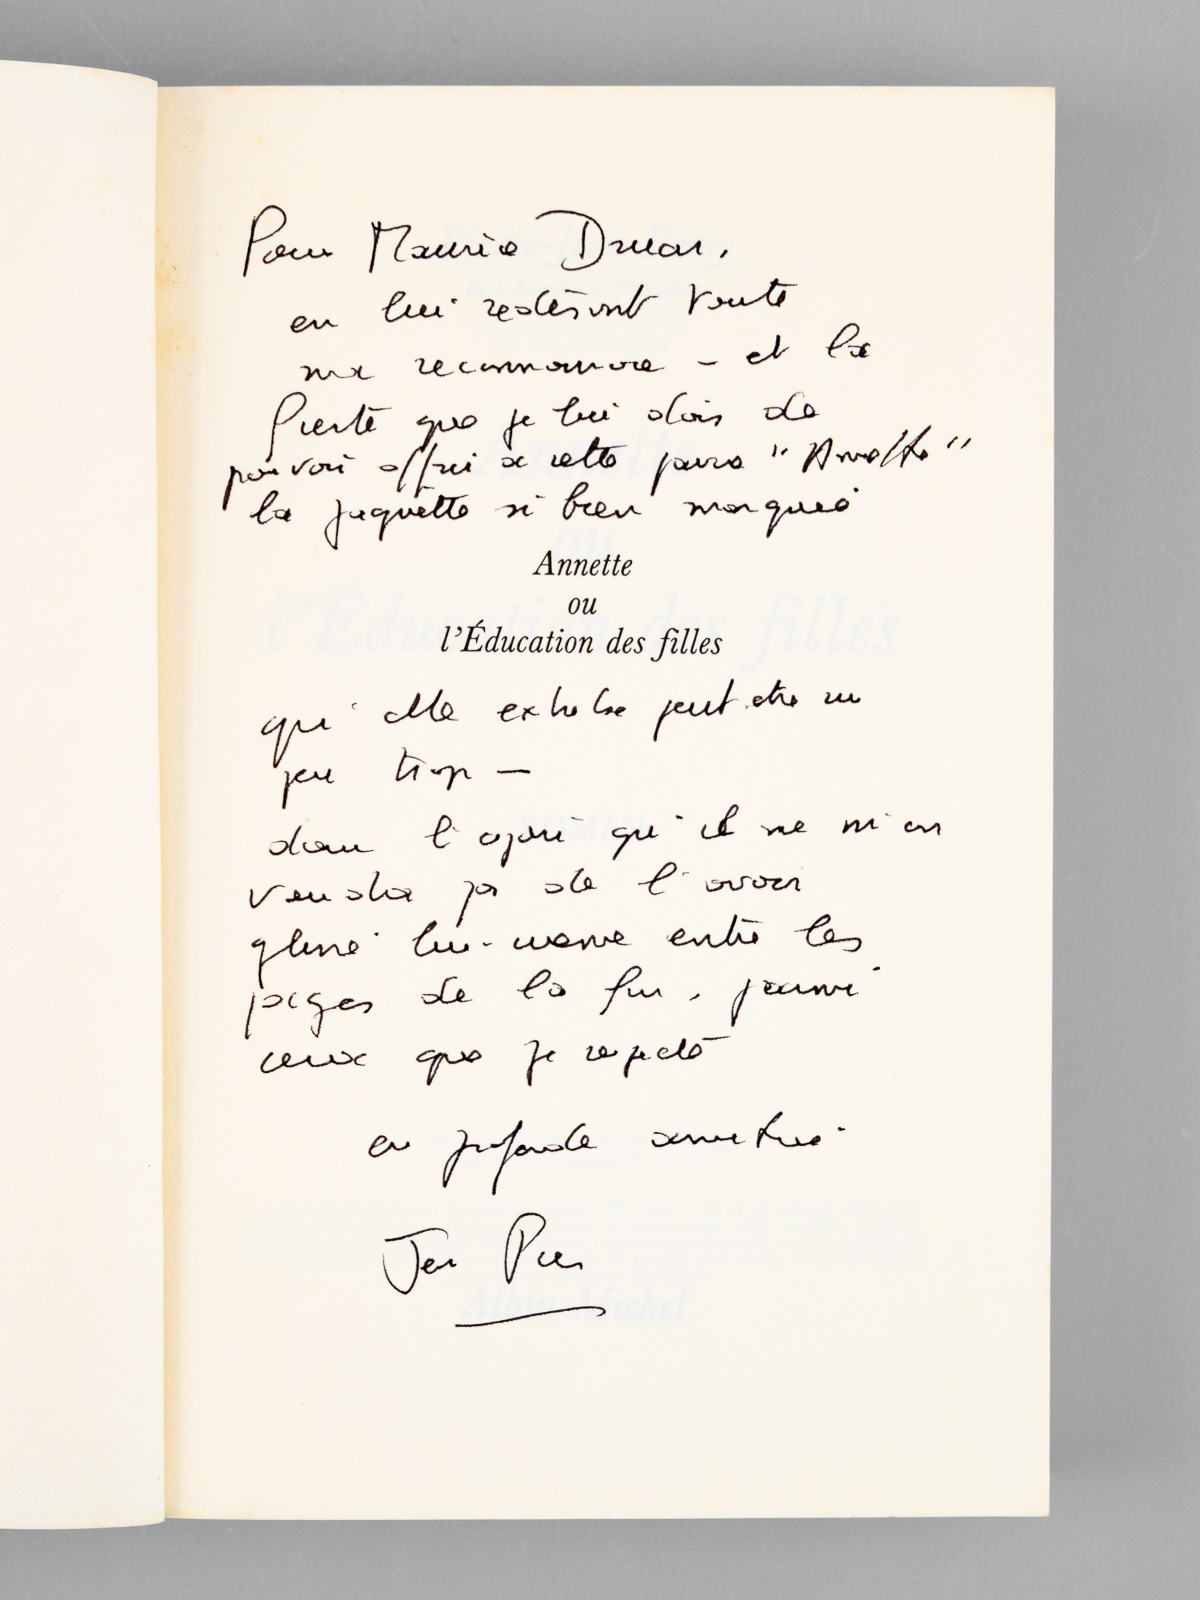 Pour Maurice Druon,
en lui redisant toute
ma reconnaissance – et la
fierté que je lui dois de
pouvoir offrir à cette "Annette"
la jaquette si bien
Annette
ou
l'Éducation des filles
qu'elle exhibe peut-être un
peu trop –
dans l'espoir qu'il ne m'en
voudra pas de l'avoir
glissé lui-même entre les
pages de la fin, parmi
ceux que je respecte
en profonde amitié
Pierre